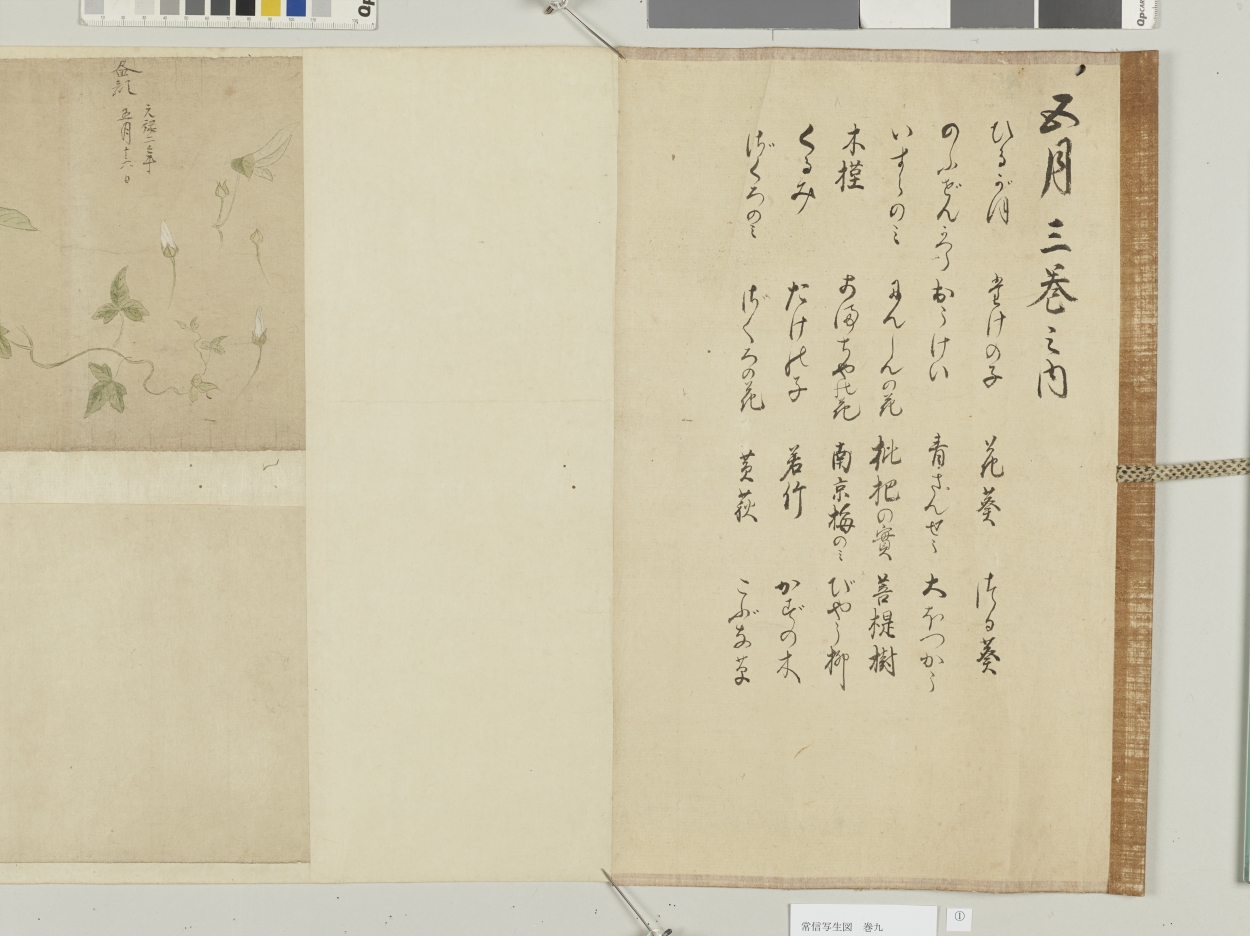 五月三巻之内
ひるがほ
たけの子
花葵
つる葵
のふぜんかつら
おうけい
青さんせう
大ほつかう
いすらのミ
にんしんの花
枇杷の實
菩提樹
木槿
あまちや花
南京梅のミ
びやう柳
くるみ
たけの子
若竹
かずの木
ざくろのミ
ざくろの花
黄萩
こぶな草
昼顔
元禄二己年
五月十六日
常信写生図　巻九
①
QpCARD